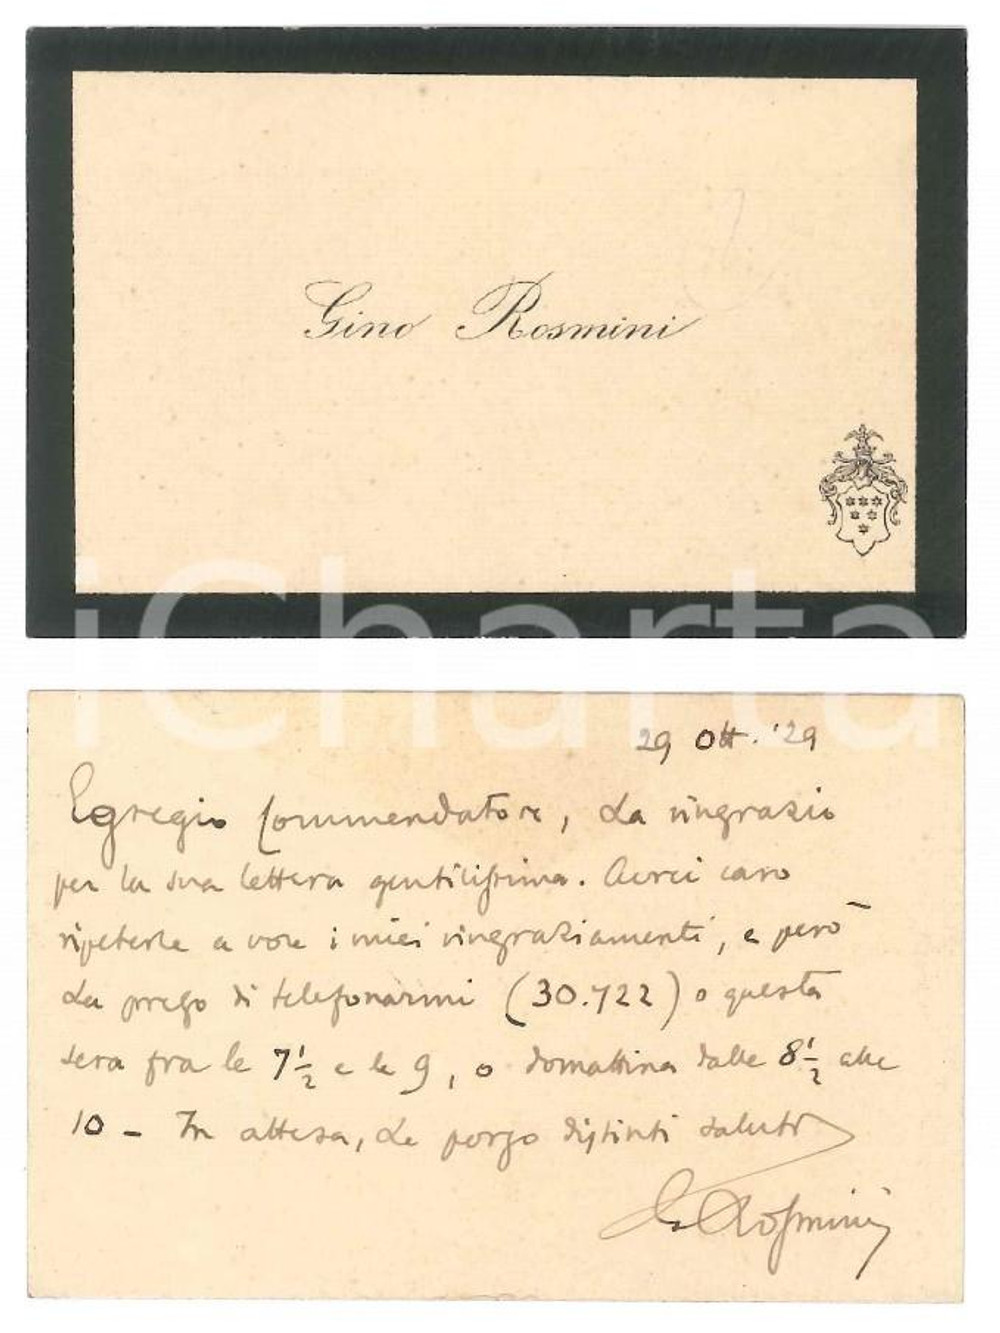 Gino Rosmini
iCharta
29 Ott. '29
Egregio Commendatore, La ringrazio
per la sua lettera gentilissima. Avrei caro
ripeterle a voce i miei ringraziamenti, e però
La prego di telefonarmi (30.722) o questa
sera fra le 7½ e le 9, o domattina dalle 8½ alle
10 – In attesa, Le porgo distinti saluti
G Rosmini